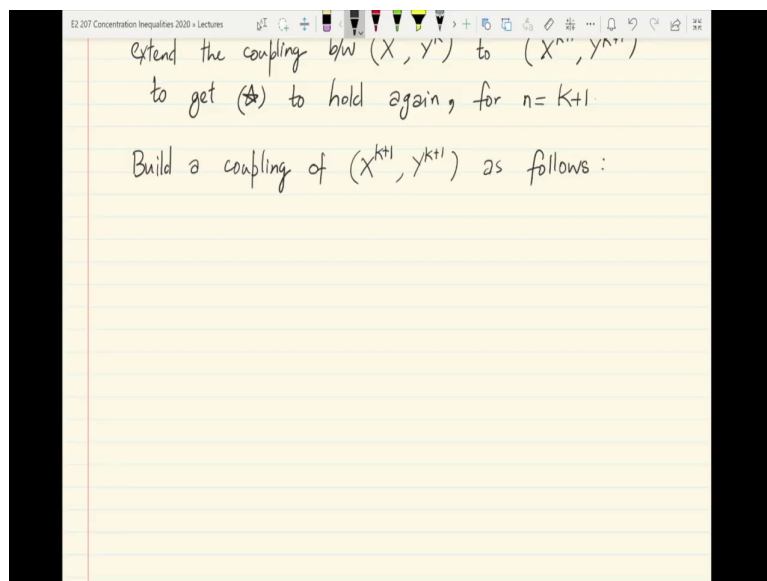 E2 207 Concentration Inequalities 2020 » Lectures
extend the coupling b/w (X , Y^k) to (X^k+1, Y^k+1)
to get (☆) to hold again, for n = k+1.
Build a coupling of (X^k+1, Y^k+1) as follows :